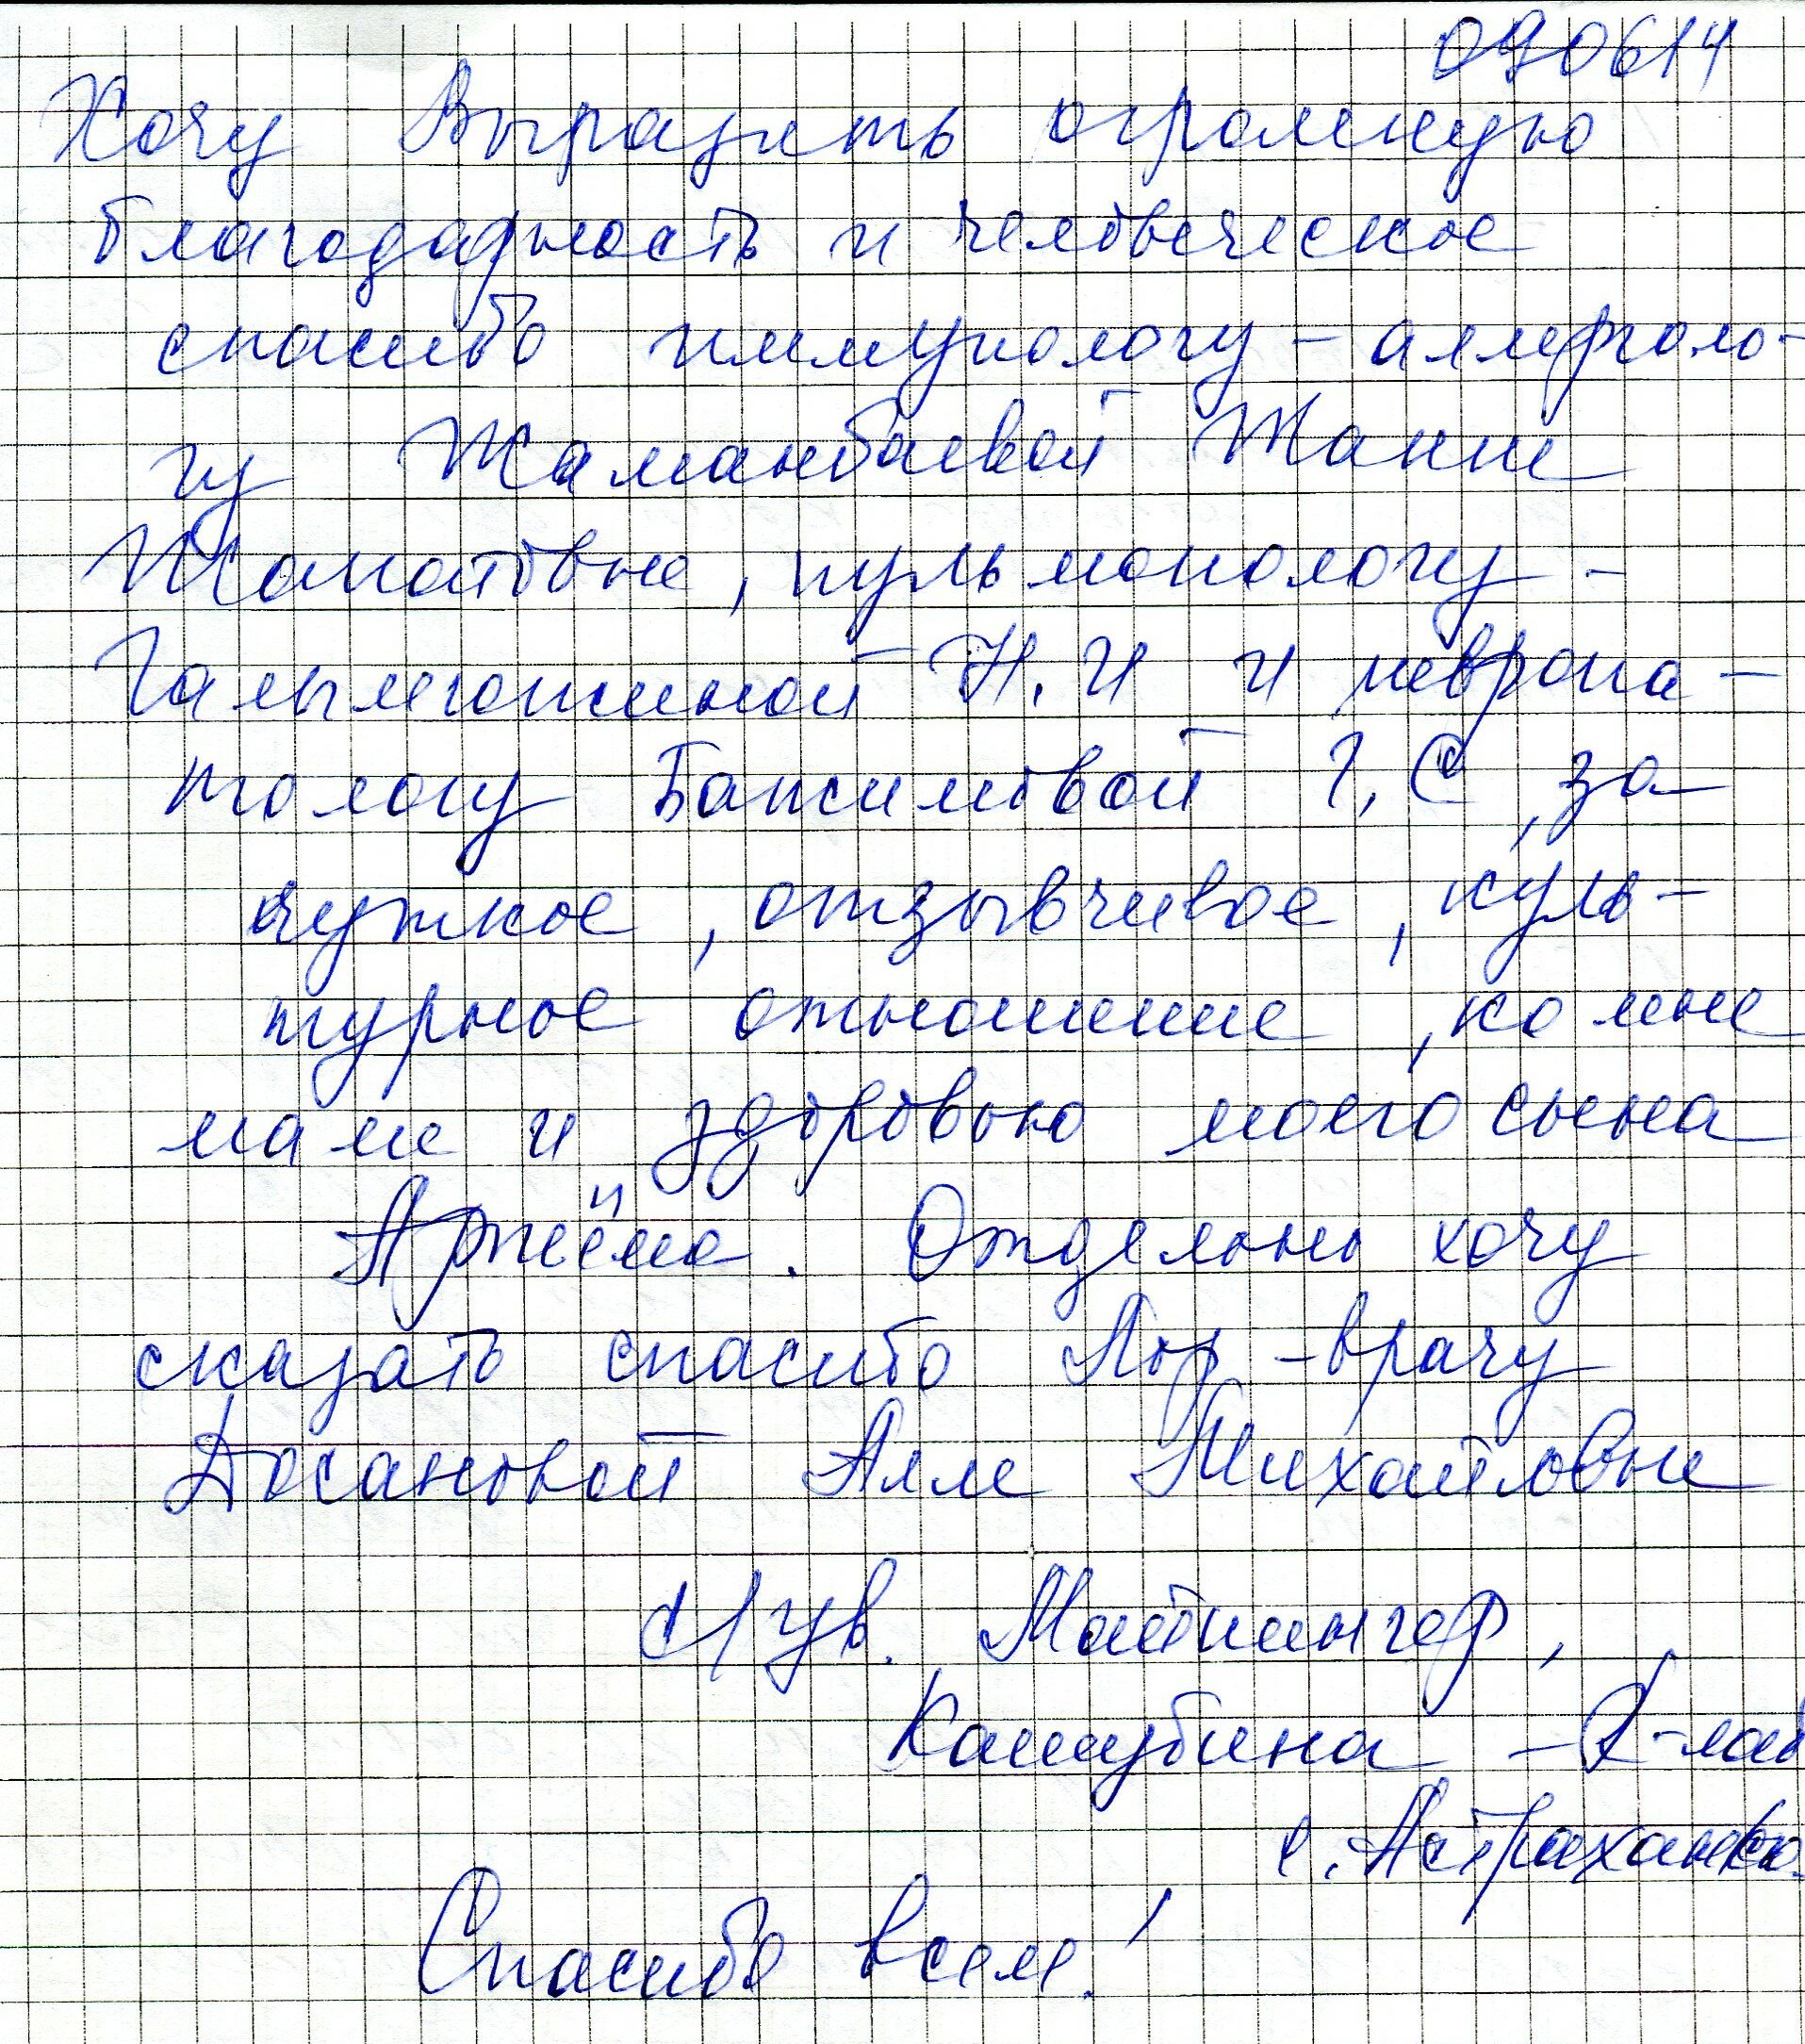 090614
Хочу Выразить огромную
благодарность и человеческое
спасибо иммунологу - аллерголо-
гу Жаманбаевой Жанне
Жанатовне, пульмонологу -
Галымжоновной Н. И и невропа-
тологу Бажимовой Г. С, за
чуткое, отзывчивое, куль-
турное отношение, ко мне
маме и здоровью моего сына
Артёма. Отдельно хочу
сказать спасибо Лор - врачу
Досановой Алле Михайловне
С/ув.
Кашубина
с. Астраханка.
Спасибо всем!